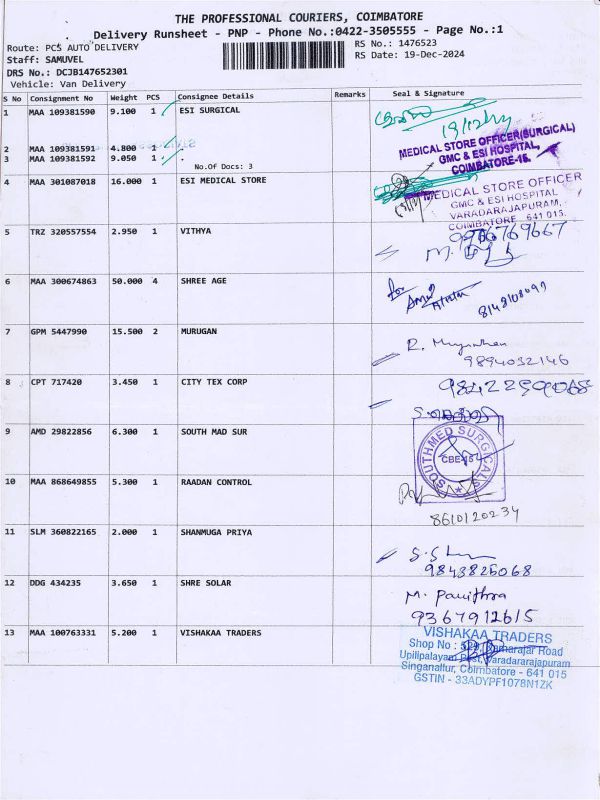 THE PROFESSIONAL COURIERS, COIMBATORE
Delivery Runsheet - PNP - Phone No.:0422-3505555 - Page No.:1
Route: PCS AUTO DELIVERY
RS No.: 1476523
Staff: SAMUVEL
RS Date: 19-Dec-2024
DRS No.: DCJB147652301
Vehicle: Van Delivery
S No Consignment No Weight PCS Consignee Details Remarks Seal & Signature
1 MAA 109381590 9.100 1 ESI SURGICAL
19/12/24
2 MAA 109381591 4.800 1 .
3 MAA 109381592 9.050 1 .
No.Of Docs: 3
MEDICAL STORE OFFICER(SURGICAL)
GMC & ESI HOSPITAL,
COIMBATORE-15.
4 MAA 301087018 16.000 1 ESI MEDICAL STORE
MEDICAL STORE OFFICER
GMC & ESI HOSPITAL
VARADARAJAPURAM,
COIMBATORE - 641 015.
5 TRZ 320557554 2.950 1 VITHYA
6 MAA 300674863 50.000 4 SHREE AGE
for
8148108099
7 GPM 5447990 15.500 2 MURUGAN
9894032146
8 CPT 717420 3.450 1 CITY TEX CORP
9842259068
9 AMD 29822856 6.300 1 SOUTH MAD SUR
SOUTHMED SURGICALS
CBE-15
10 MAA 868649855 5.300 1 RAADAN CONTROL
8610120234
11 SLM 360822165 2.000 1 SHANMUGA PRIYA
9843825068
12 DDG 434235 3.650 1 SHRE SOLAR
M. Pavithra
9367912615
13 MAA 100763331 5.200 1 VISHAKAA TRADERS
VISHAKAA TRADERS
Shop No : Kamarajar Road
Upilipalayam Post, Varadararajapuram
Singanallur, Coimbatore - 641 015
GSTIN - 33ADYPF1078N1ZK